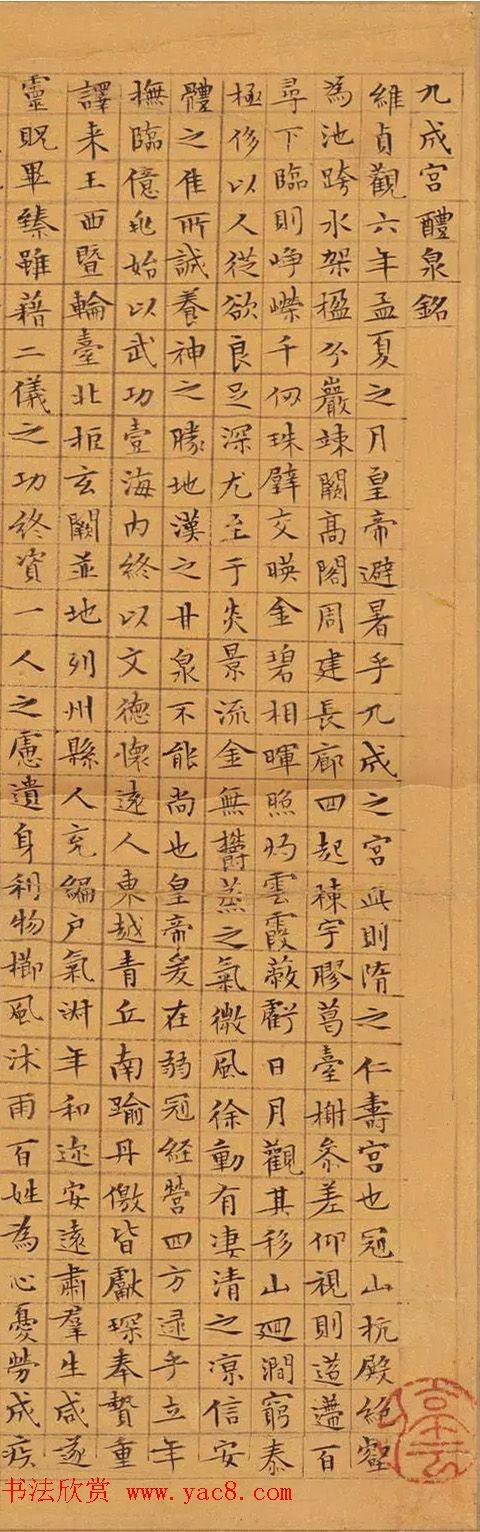 九成宮醴泉銘
維貞觀六年孟夏之月皇帝避暑乎九成之宮此則隋之仁壽宮也冠山抗殿絕壑
為池跨水架楹分巖竦闕高閣周建長廊四起棟宇膠葛臺榭參差仰視則迢遰百
尋下臨則崢嶸千仞珠壁交暎金碧相暉照灼雲霞蔽虧日月觀其移山迴澗窮泰
極侈以人從欲良足深尤至于炎景流金無欝蒸之氣微風徐動有凄清之涼信安
體之佳所誠養神之勝地漢之甘泉不能尚也皇帝爰在弱冠經營四方逮乎立年
撫臨億兆始以武功壹海內終以文德懷遠人東越青丘南踰丹儌皆獻琛奉贄重
譯来王西暨輪臺北拒玄闕並地列州縣人充編戶氣淑年和迩安遠肅羣生咸遂
靈貺畢臻雖藉二儀之功終資一人之慮遺身利物櫛風沐雨百姓為心憂勞成疾
书法欣赏 www.yac8.com